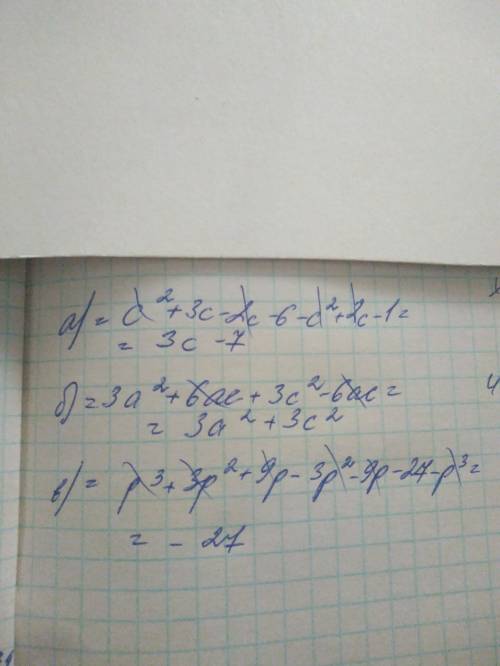 а) = c² + 3c - 2c - 6 - c² + 2c - 1 =
= 3c - 7
б) = 3a² + 6ac + 3c² - 6ac =
= 3a² + 3c²
в) = p³ + 3p² + 9p - 3p² - 9p - 27 - p³ =
= - 27